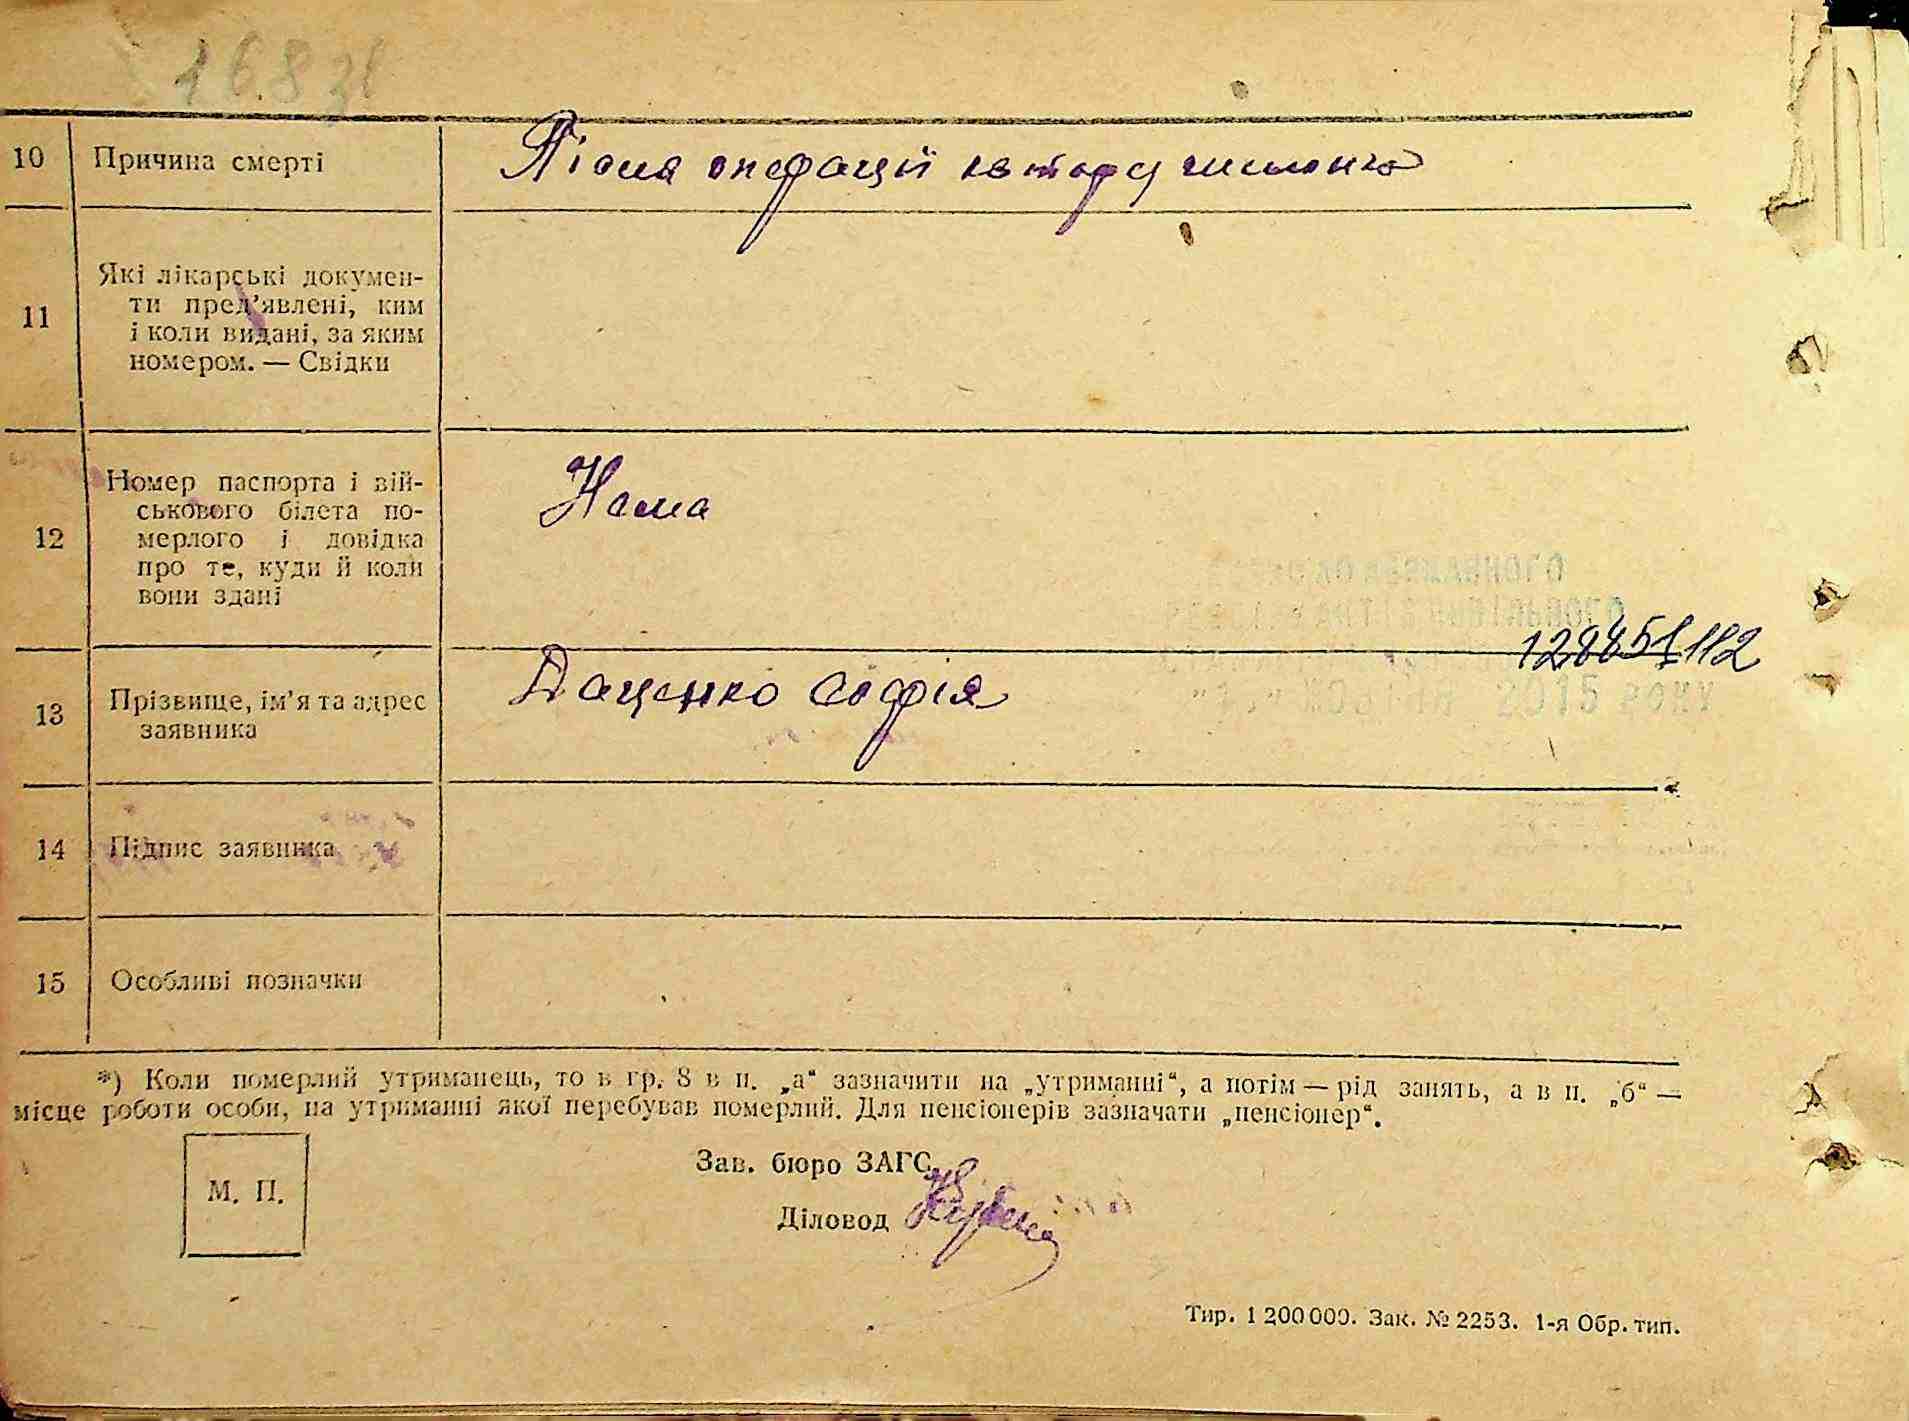 168 зі
10 Причина смерті
Після операції
11 Які лікарські докумен-
ти пред’явлені, ким
і коли видані, за яким
номером. — Свідки
12 Номер паспорта і вій-
ськового білета по-
мерлого і довідка
про те, куди й коли
вони здані
Нема
ДЕРЖАВНОГО
128851112
2015 РОКУ
13 Прізвище, ім’я та адрес
заявника
Даценко Софія
14 Підпис заявника
15 Особливі позначки
*) Коли померлий утриманець, то в гр. 8 в п. „а“ зазначити на „утриманні“, а потім — рід занять, а в п. „б“ —
місце роботи особи, на утриманні якої перебував померлий. Для пенсіонерів зазначати „пенсіонер“.
М. П.
Зав. бюро ЗАГС
Діловод
Тир. 1 200 000. Зак. № 2253. 1-я Обр. тип.